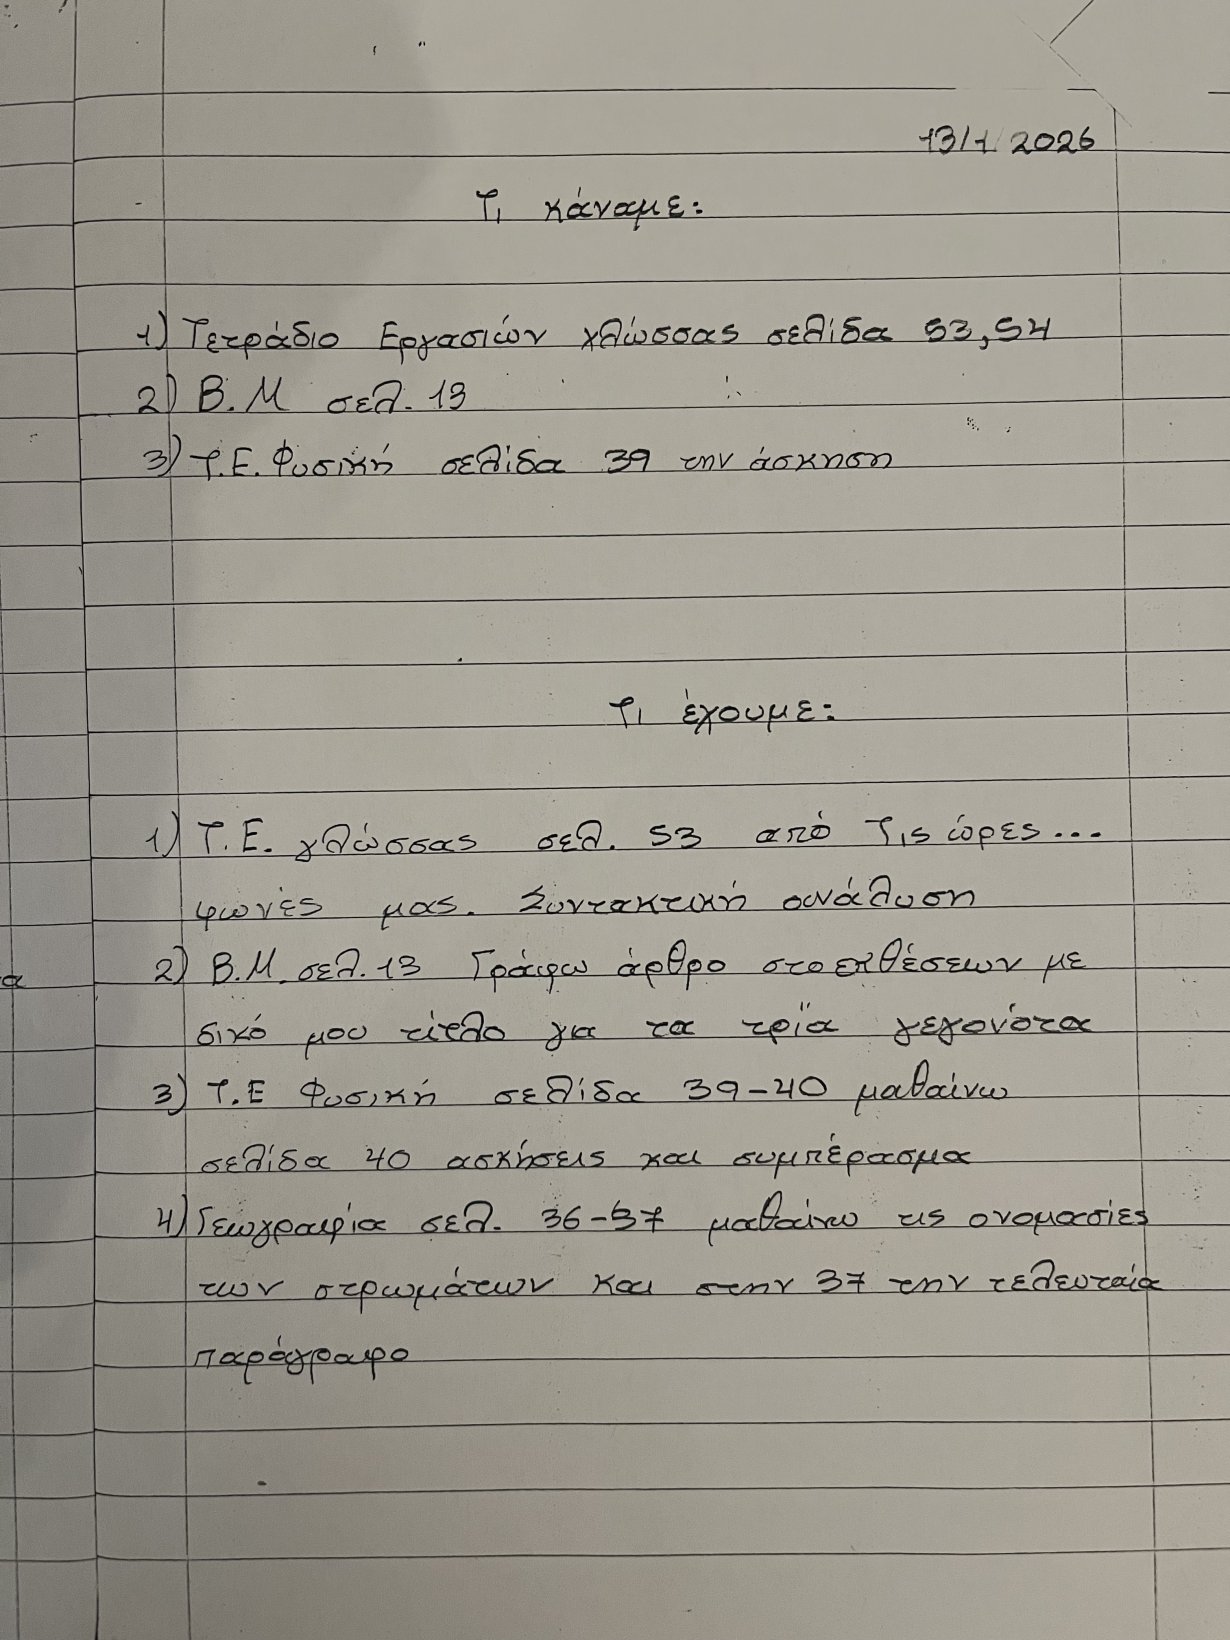 13/1/2026
Τι κάναμε:
1) Τετράδιο Εργασιών γλώσσας σελίδα 53, 54
2) Β.Μ σελ. 13
3) Τ.Ε. Φυσική σελίδα 39 την άσκηση
Τι έχουμε:
1) Τ.Ε. γλώσσας σελ. 53 από Τις ώρες...
φωνές μας. Συντακτική ανάλυση
2) Β.Μ. σελ. 13 Γράφω άρθρο στο εκθέσεων με
α
δικό μου τίτλο για τα τρία γεγονότα
3) Τ.Ε Φυσική σελίδα 39-40 μαθαίνω
σελίδα 40 ασκήσεις και συμπέρασμα
4) Γεωγραφία σελ. 36-37 μαθαίνω τις ονομασίες
των στρωμάτων και στην 37 την τελευταία
παράγραφο